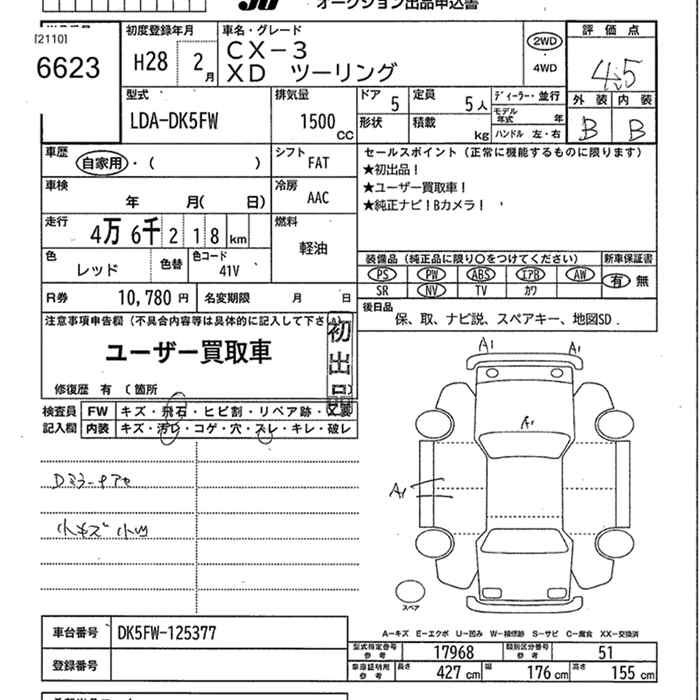 オークション出品申込書
[2110]
6623
初度登録年月
H28 2月
車名・グレード
CX-3
XD ツーリング
2WD
・
4WD
評価点
4.5
外装 内装
B B
型式
LDA-DK5FW
排気量
1500 CC
ドア 5
定員 5人
ディーラー・並行
形状
積載 kg
モデル年式 年
ハンドル 左・右
車歴
自家用・( )
シフト
FAT
セールスポイント(正常に機能するものに限ります)
★初出品!
★ユーザー買取車!
★純正ナビ!Bカメラ!
車検
年 月( 日)
冷房
AAC
走行
4万6千218km
燃料
軽油
色
レッド
色替
色コード
41V
装備品(純正品に限り○をつけてください)
新車保証書
PS PW ABS エアB AW
有 無
SR NV TV カワ
R券 10,780円
名変期限 月 日
後日品
保、取、ナビ説、スペアキー、地図SD.
注意事項申告欄(不具合内容等は具体的に記入して下さい)
ユーザー買取車
初出品
修復歴 有 (箇所
検査員記入欄
FW キズ・飛石・ヒビ割・リペア跡・
内装 キズ・汚レ・コゲ・穴・スレ・キレ・破レ
A1 A1
A1
A1
小キズ 小凹
スペア
A-キズ E-エクボ U-凹み W-補修跡 S-サビ C-腐食 XX-交換済
車台番号 DK5FW-125377
登録番号
型式指定番号 参考 17968
類別区分番号 参考 51
車庫証明用 参考
長さ 427cm 幅 176cm 高さ 155cm